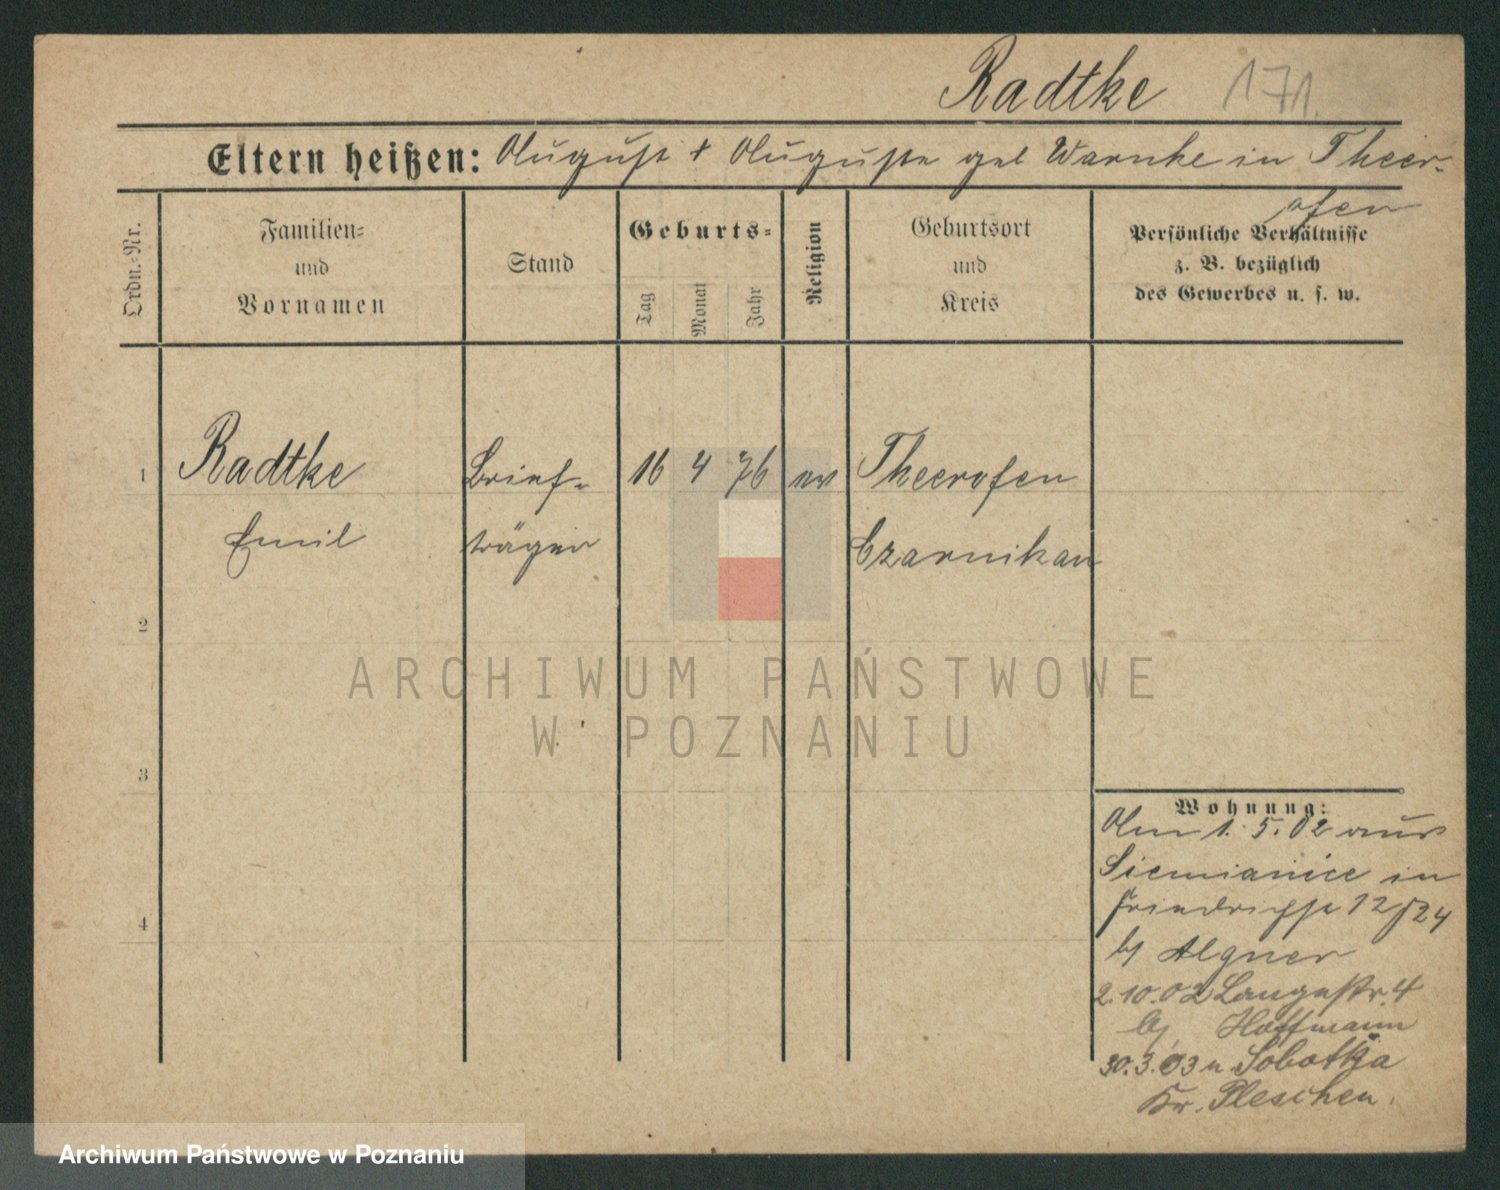 Radtke 171.
Eltern heißen: August + Auguste geb Warnke in Theer-
ofen
Ordn.-Nr.
Familien-
und
Vornamen
Stand
Geburts-
Tag
Monat
Jahr
Religion
Geburtsort
und
Kreis
Persönliche Verhältnisse
z. B. bezüglich
des Gewerbes u. s. w.
1 Radtke Brief- 16 4 76 ev Theerofen
Emil träger Czarnikau
2
3
4
Wohnung:
Am 1. 5. 02 aus
Siemianice in
Friedrichstr 12/24
bj Algner
2.10.02 Langestr. 4
bj Hoffmann
30.3.03 n Sobotka
Kr. Pleschen.
ARCHIWUM PAŃSTWOWE
W POZNANIU
Archiwum Państwowe w Poznaniu